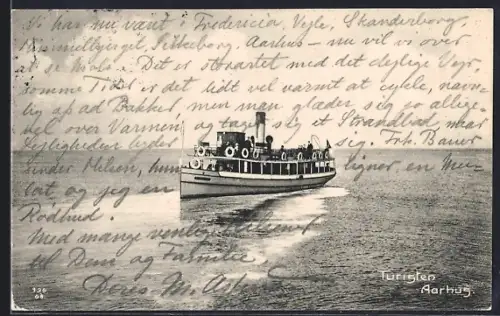 Vi har nu været i Fredericia, Vejle, Skanderborg,
Himmelbjerget, Silkeborg, Aarhus – nu vil vi over
at se Mols. Det er storartet med det dejlige Vejr
somme Tider er det lidt vel varmt at cykle, navn-
lig op ad Bakker men man glæder sig jo allige-
vel over Varmen, og tager sig et Strandbad naar
Lejligheden byder sig. Frk. Bauer
sender Hilsen, hun ligner en Mu-
lat og jeg en
Rødhud.
Med mange venlige Hilsner
til Dem og Familie,
Deres M.
Turisten
Aarhus.